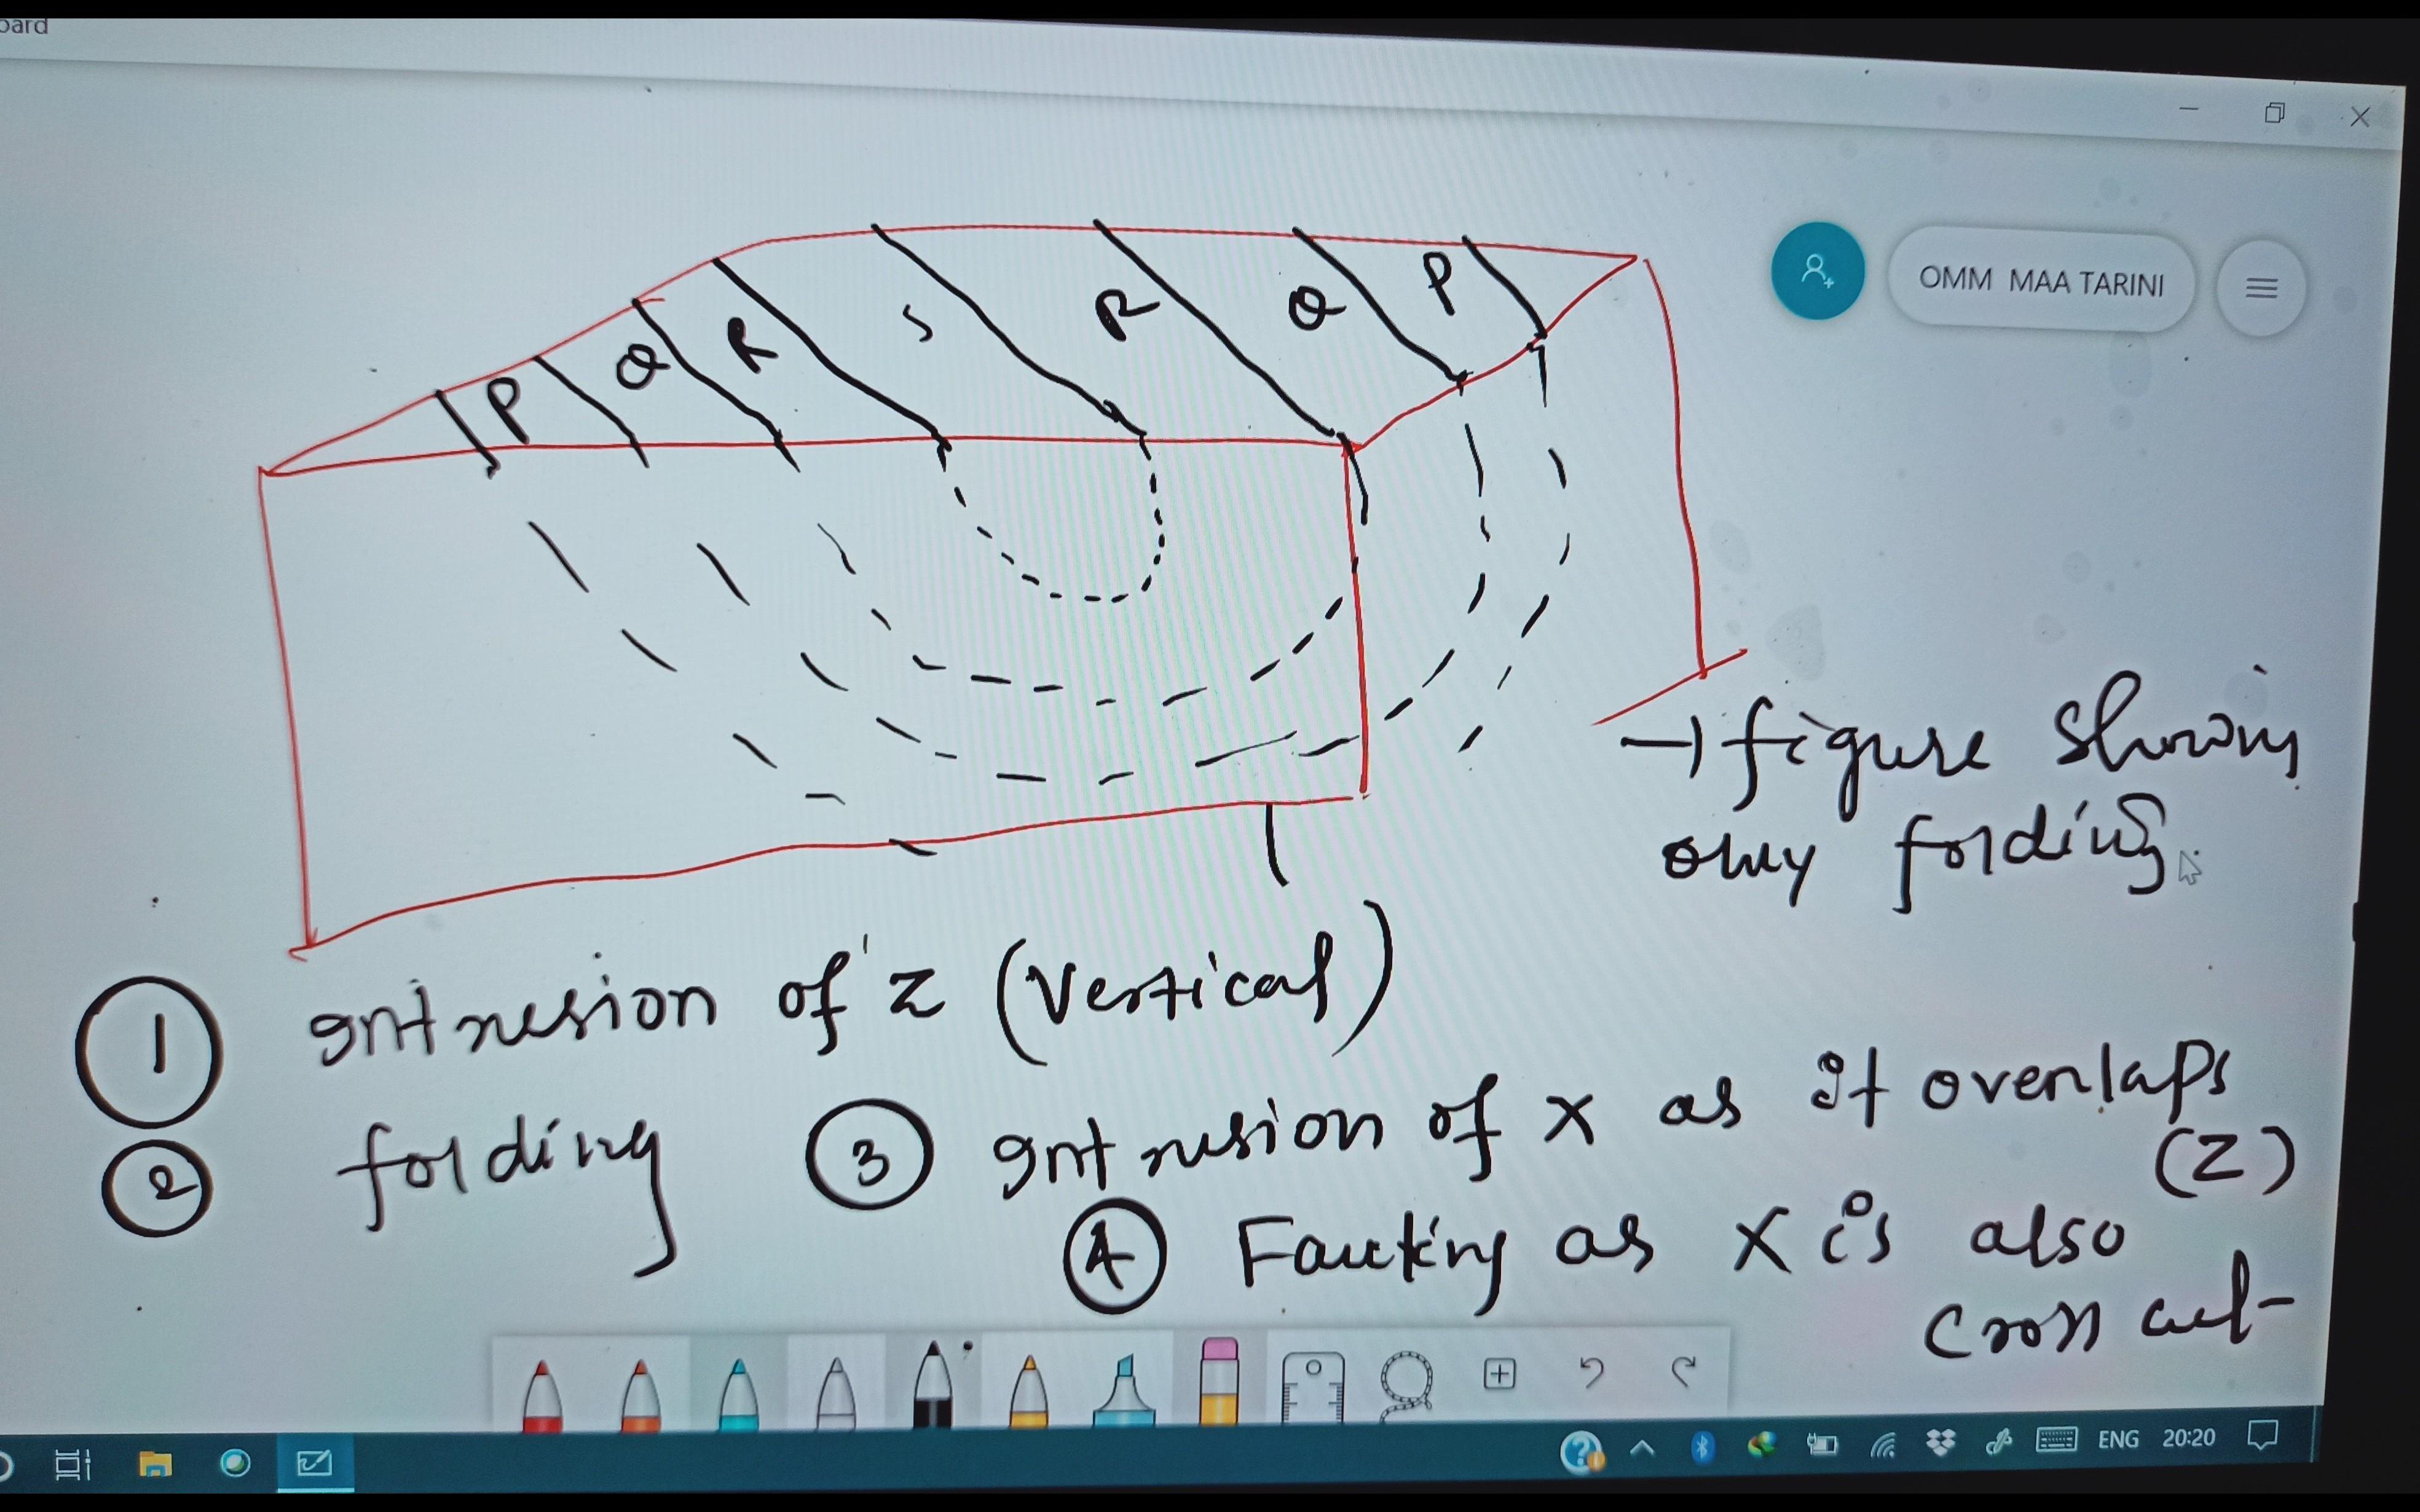 oard
OMM MAA TARINI
P Q R S R Q P
→ figure showing
only folding.
1 Intrusion of Z (Vertical)
2 folding 3 Intrusion of X as it overlaps
(Z)
4 Faulting as X is also
cross cut-
ENG 20:20